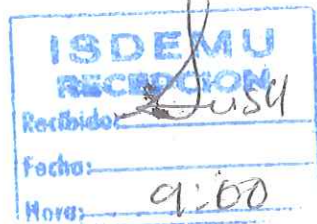 ISDEMU
RECEPCION
Recibido: Susy
Fecha:
Hora: 9:00